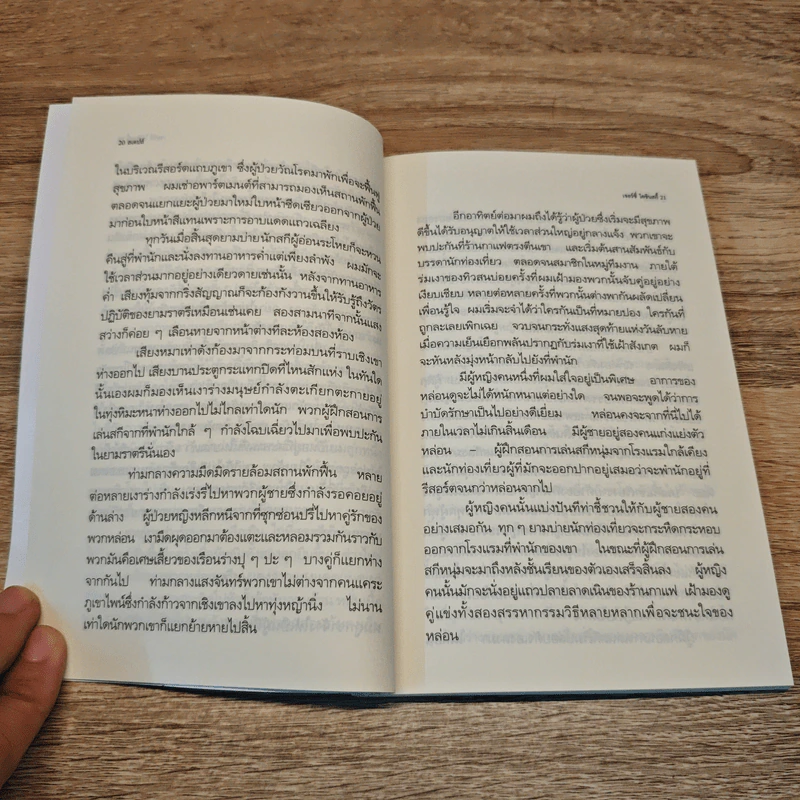 20 สเตปส์
ในบริเวณรีสอร์ตแถบภูเขา ซึ่งผู้ป่วยวัณโรคมาพักเพื่อจะฟื้นฟู
สุขภาพ ผมเช่าอพาร์ตเมนต์ที่สามารถมองเห็นสถานพักฟื้น
ตลอดจนแยกแยะผู้ป่วยมาใหม่ใบหน้าซีดเซียวออกจากผู้ป่วย
มาก่อนใบหน้าสีแทนเพราะการอาบแดดแถวเฉลียง
ทุกวันเมื่อสิ้นสุดยามบ่ายนักสกีผู้อ่อนระโหยก็จะหวน
คืนสู่ที่พำนักและนั่งลงทานอาหารค่ำแต่เพียงลำพัง ผมมักจะ
ใช้เวลาส่วนมากอยู่อย่างเดียวดายเช่นนั้น หลังจากทานอาหาร
ค่ำ เสียงทุ้มจากกริ่งสัญญาณก็จะก้องกังวานขึ้นให้รับรู้ถึงวัตร
ปฏิบัติของยามราตรีเหมือนเช่นเคย สองสามนาทีจากนั้นแสง
สว่างก็ค่อย ๆ เลือนหายจากหน้าต่างทีละห้องสองห้อง
เสียงหมาเห่าดังก้องมาจากกระท่อมบนที่ราบเชิงเขา
ห่างออกไป เสียงบานประตูกระแทกปิดที่ไหนสักแห่ง ในทันใด
นั้นเองผมก็มองเห็นเงาร่างมนุษย์กำลังตะเกียกตะกายอยู่
ในทุ่งหิมะหนาห่างออกไปไม่ไกลเท่าใดนัก พวกผู้ฝึกสอนการ
เล่นสกีจากที่พำนักใกล้ ๆ กำลังโฉบเฉี่ยวไปมาเพื่อพบปะกัน
ในยามราตรีนั่นเอง
ท่ามกลางความมืดมิดรายล้อมสถานพักฟื้น หลาย
ต่อหลายเงาร่างกำลังเร่งรี่ไปหาพวกผู้ชายซึ่งกำลังรอคอยอยู่
ด้านล่าง ผู้ป่วยหญิงหลีกหนีจากที่ซุกซ่อนปรี่ไปหาคู่รักของ
พวกหล่อน เงามืดผุดออกมาต้องแตะและหลอมรวมกันราวกับ
พวกมันคือเศษเสี้ยวของเรือนร่างปุ ๆ ปะ ๆ บางคู่ก็แยกห่าง
จากกันไป ท่ามกลางแสงจันทร์พวกเขาไม่ต่างจากคนแคระ
ภูเขาไพน์ซึ่งกำลังก้าวจากเชิงเขาลงไปหาทุ่งหญ้านิ่ง ไม่นาน
เท่าใดนักพวกเขาก็แยกย้ายหายไปสิ้น
เจอร์ซี่ โคซินสกี้ 21
อีกอาทิตย์ต่อมาผมถึงได้รู้ว่าผู้ป่วยซึ่งเริ่มจะมีสุขภาพ
ดีขึ้นได้รับอนุญาตให้ใช้เวลาส่วนใหญ่อยู่กลางแจ้ง พวกเขาจะ
พบปะกันที่ร้านกาแฟตรงตีนเขา และเริ่มต้นสานสัมพันธ์กับ
บรรดานักท่องเที่ยว ตลอดจนสมาชิกในหมู่ทีมงาน ภายใต้
ร่มเงาของทิวสนบ่อยครั้งที่ผมเฝ้ามองพวกนั้นจับคู่อยู่อย่าง
เงียบเชียบ หลายต่อหลายครั้งที่พวกนั้นต่างพากันผลัดเปลี่ยน
เพื่อนรู้ใจ ผมเริ่มจะจำได้ว่าใครกันเป็นที่หมายปอง ใครกันที่
ถูกละเลยเพิกเฉย จวบจนกระทั่งแสงสุดท้ายแห่งวันลับหาย
เมื่อความเย็นเยือกพลันปรากฏกับร่มเงาที่ใช้เฝ้าสังเกต ผมก็
จะหันหลังมุ่งหน้ากลับไปยังที่พำนัก
มีผู้หญิงคนหนึ่งที่ผมใส่ใจอยู่เป็นพิเศษ อาการของ
หล่อนดูจะไม่ได้หนักหนาแต่อย่างใด จนพอจะพูดได้ว่าการ
บำบัดรักษาเป็นไปอย่างดีเยี่ยม หล่อนคงจะจากที่นี่ไปได้
ภายในเวลาไม่เกินสิ้นเดือน มีผู้ชายอยู่สองคนแก่งแย่งตัว
หล่อน – ผู้ฝึกสอนการเล่นสกีหนุ่มจากโรงแรมใกล้เคียง
และนักท่องเที่ยวผู้ที่มักจะออกปากอยู่เสมอว่าจะพำนักอยู่ที่
รีสอร์ตจนกว่าหล่อนจากไป
ผู้หญิงคนนั้นแบ่งปันทีท่าชี้ชวนให้กับผู้ชายสองคน
อย่างเสมอกัน ทุก ๆ ยามบ่ายนักท่องเที่ยวจะกระหืดกระหอบ
ออกจากโรงแรมที่พำนักของเขา ในขณะที่ผู้ฝึกสอนการเล่น
สกีหนุ่มจะมาถึงหลังชั้นเรียนของตัวเองเสร็จสิ้นลง ผู้หญิง
คนนั้นมักจะนั่งอยู่แถวปลายลาดเนินของร้านกาแฟ เฝ้ามองดู
คู่แข่งทั้งสองสรรหากรรมวิธีหลายหลากเพื่อจะชนะใจของ
หล่อน